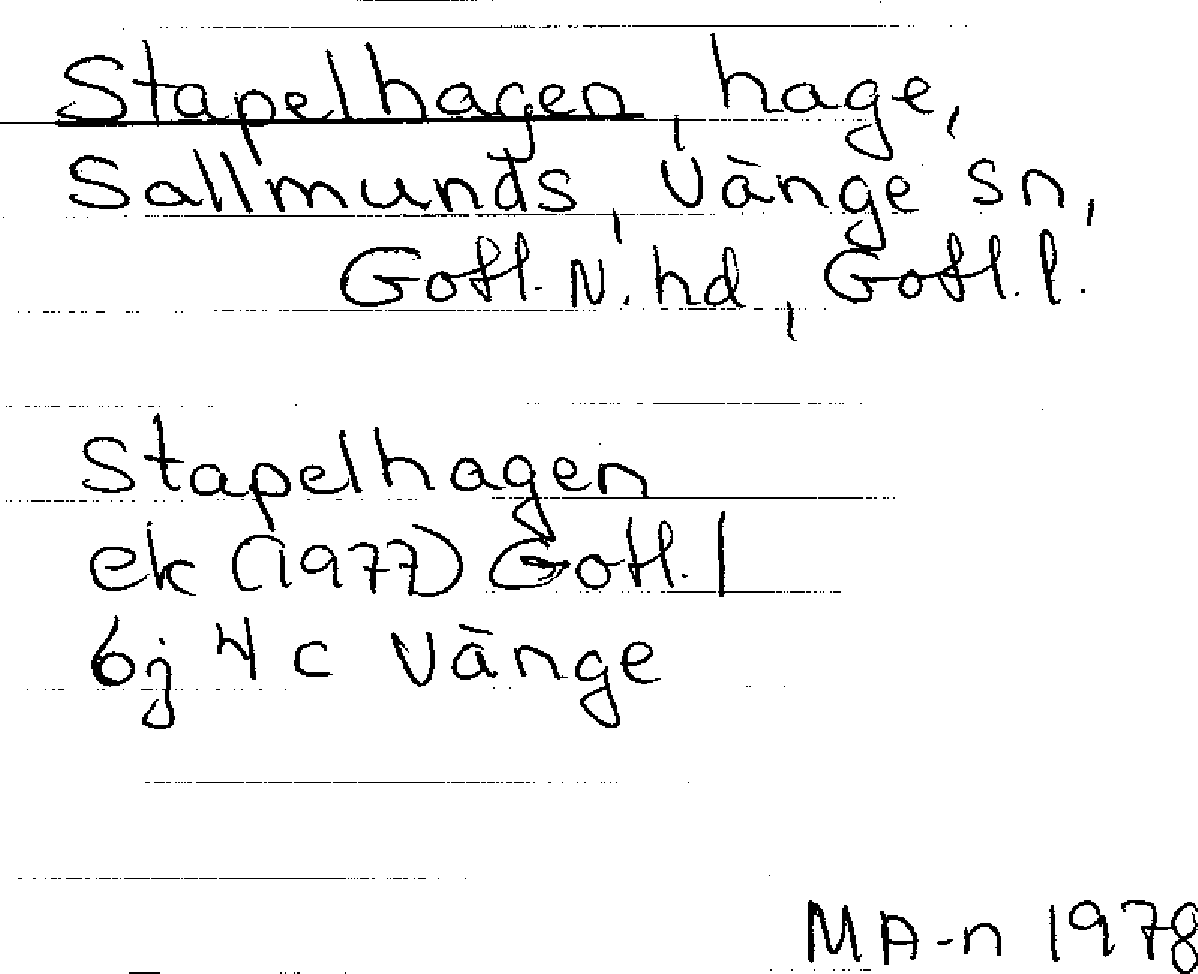 Stapelhagen, hage,
Sallmunds, Vänge sn,
Gotl. N. hd, Gotl. l.
Stapelhagen
ek (1977) Gotl. l
6j 4 c Vänge
MA-n 1978